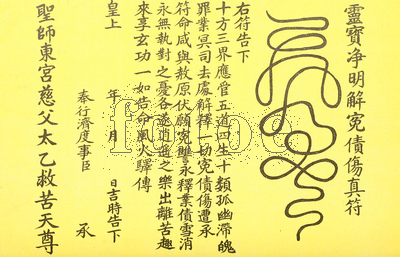 靈寶净明解冤債傷真符
右符告下
十方三界應管五道四生十類孤幽滯魄
罪業冥司去處解釋一切冤債傷遭承
符命咸與赦原伏願冤讐永釋業債雪消
永無執對之憂各遂逍遙之樂出離苦趣
來享玄功一如告命風火驛傳
皇上 年 月 日吉時告下
奉行濟度事臣 承
聖師東宮慈父太乙救苦天尊